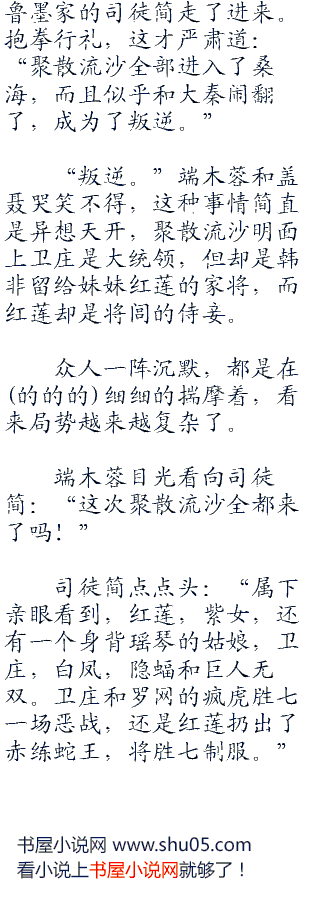 鲁墨家的司徒简走了进来。
抱拳行礼，这才严肃道：
“聚散流沙全部进入了桑
海，而且似乎和大秦闹翻
了，成为了叛逆。”
“叛逆。”端木蓉和盖
聂哭笑不得，这种事情简直
是异想天开，聚散流沙明面
上卫庄是大统领，但却是韩
非留给妹妹红莲的家将，而
红莲却是将闾的侍妾。
众人一阵沉默，都是在
(的的的)细细的揣摩着，看
来局势越来越复杂了。
端木蓉目光看向司徒
简：“这次聚散流沙全都来
了吗！”
司徒简点点头：“属下
亲眼看到，红莲，紫女，还
有一个身背瑶琴的姑娘，卫
庄，白凤，隐蝠和巨人无
双。卫庄和罗网的疯虎胜七
一场恶战，还是红莲扔出了
赤练蛇王，将胜七制服。”
书屋小说网 www.shu05.com
看小说上书屋小说网就够了！